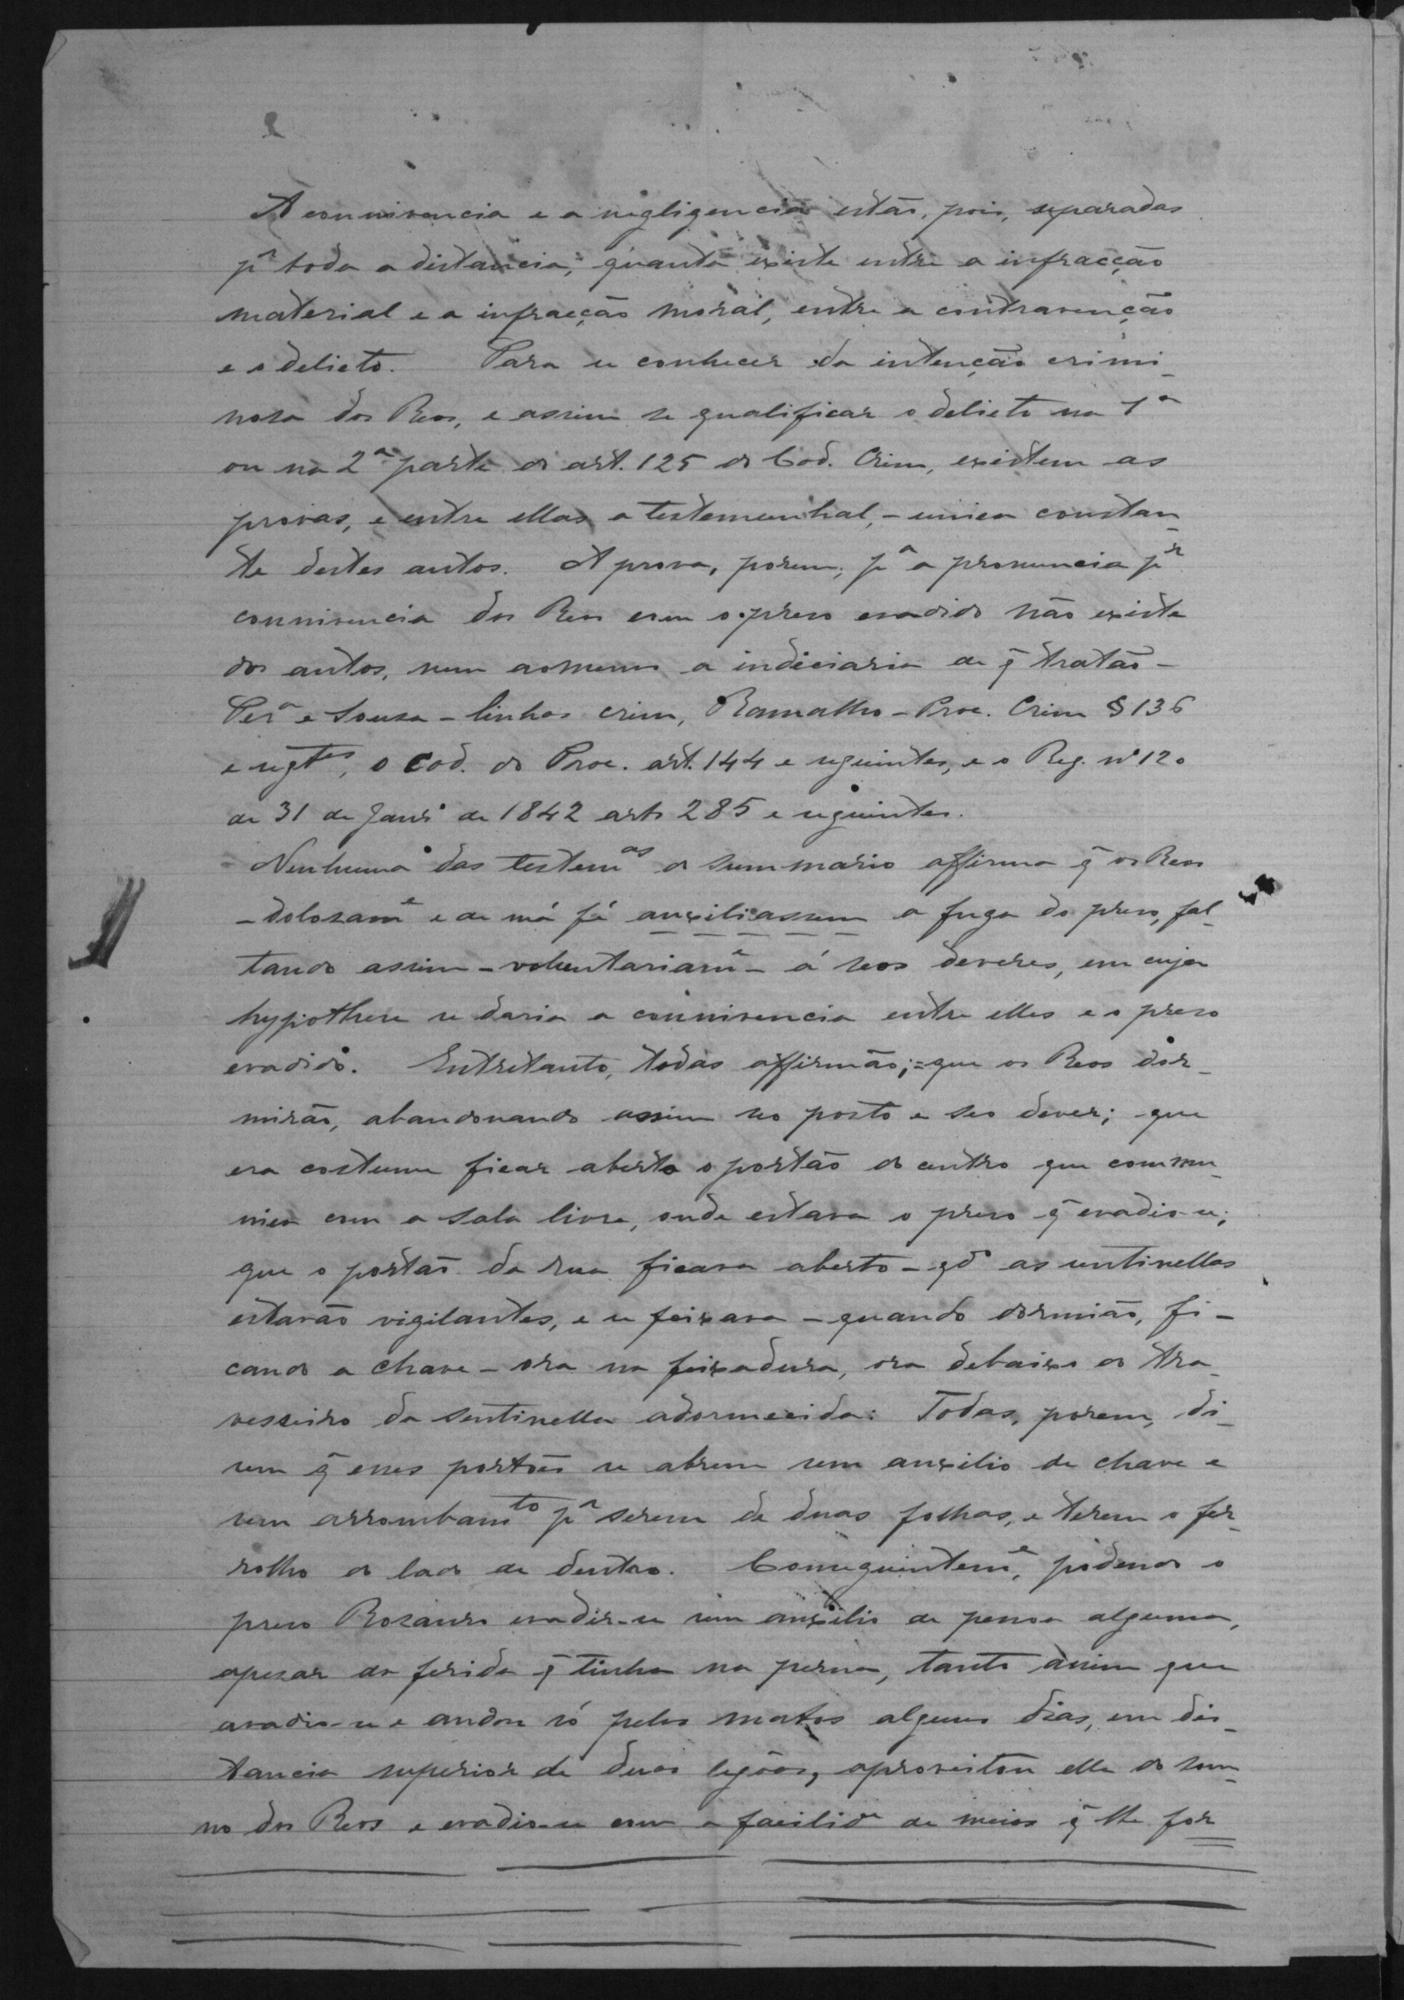 A connivencia e a negligencia estão, pois, separadas
pr toda a distancia, quanta existe entre a infracção
material e a infracção moral, entre a contravenção
e o delicto. Para se conhecer da intenção crimi-
nosa dos Reos, e assim se qualificar o delicto na 1ª
ou na 2ª parte do art. 125 do Cod. Crim, existem as
provas, e entre ellas a testemunhal, - unica constan-
te destes autos. A prova, porem, pª a pronuncia pr
connivencia dos Reos com o preso evadido não existe
dos autos, nem ao menos a indiciaria de q̃ tratão -
Perª e Sousa - linhas crim, Ramalho - Proc. Crim § 136
e segtes, o Cod. do Proc. art. 144 e seguintes, e o Reg. nº 120
de 31 de Janrº de 1842 arts 285 e seguintes.
Nenhuma das testemas do summario affirma q̃ os Reos
- dolozame e de má fé auxiliassem a fuga do preso, fal-
tando assim - voluntariame - á seos deveres, em cuja
hypothese se daria a connivencia entre elles e o preso
evadido. Entretanto, todas affirmão; = que os Reos dor-
mirão, abandonando assim seo posto e seo dever; que
era costume ficar aberto o portão do centro que commu-
nica com a sala livre, onde estava o preso q̃ evadio-se;
que o portão da rua ficava aberto - qdº as sentinellas
estavão vigilantes, e se feixava - quando dormião, fi-
cando a chave - ora na feixadura, ora debaixo do tra-
vesseiro da sentinella adormecida: Todas, porem, di-
sem q̃ esses portões se abrem sem auxilio de chave e
sem arrombamto pr serem de duas folhas, e terem o fer-
rolho do lado de dentro. Conseguinteme, podendo o
preso Rozauro evadir-se sem auxilio de pessoa alguma,
apezar da ferida q̃ tinha na perna, tanto assim que
evadio-se e andou só pelos matos alguns dias, em dis-
tancia superior de duas legoas, aproveitou elle do som-
no dos Reos e evadio-se com a facilide de meios q̃ lhe for=